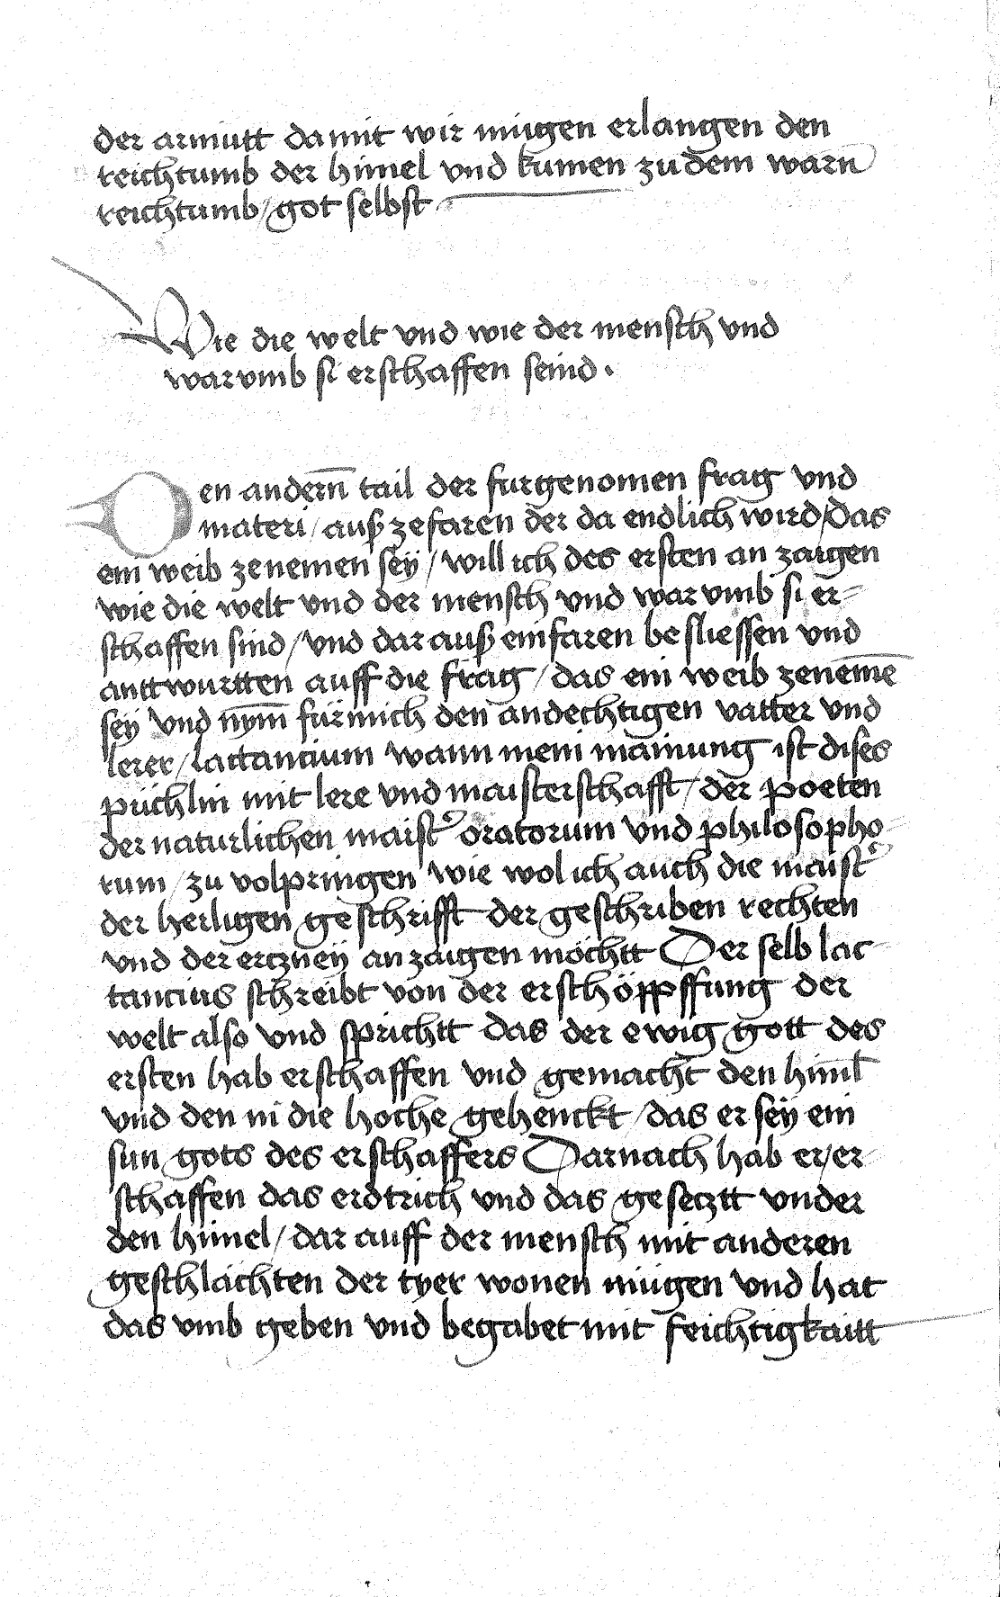 der armutt da mit wir mügen erlangen den
reichtumb der himel vnd kumen zu dem warn̄
reichtumb / got selbst
Wie die welt vnd wie der mensch vnd
war vmb si erschaffen seind .
Den andern̄ tail der furgenomen frag vnd
materi / auß zefaren der da endlich wird / das
ein weib zenemen sey / will ich des ersten an zaigen
wie die welt vnd der mensch vnd war vmb si er-
schaffen sind / vnd dar auß einfaren besliessen vnd
antt wurtten auff die frag / das ein weib zenemē
sey vnd nym̄ für mich den andechtigen vatter vnd
lerer / lactancium wann mein mainung ist dises
püchlin mit lere vnd maisterschafft / der poeten
der naturlichen maist᾽ oratorum vnd philosopho-
rum / zu volpringen wie wol ich auch die maist᾽
der heiligen geschrifft der geschriben rechten
vnd der ertzney an zaigen möchtt Der selb lac-
tancius schreibt von der erschöppffung der
welt also vnd sprichtt das der ewig gott des
ersten hab erschaffen vnd gemacht den himl̄
vnd den in die hoche gehenckt / das er sey ein
sun gots des erschaffers Darnach hab er / er-
schaffen das erdtrich vnd das gesetztt vnder
den himel / dar auff der mensch mit anderen
geschlächten der tyer wonen mügen vnd hat
das vmb geben vnd begabet mit feichtigkaitt